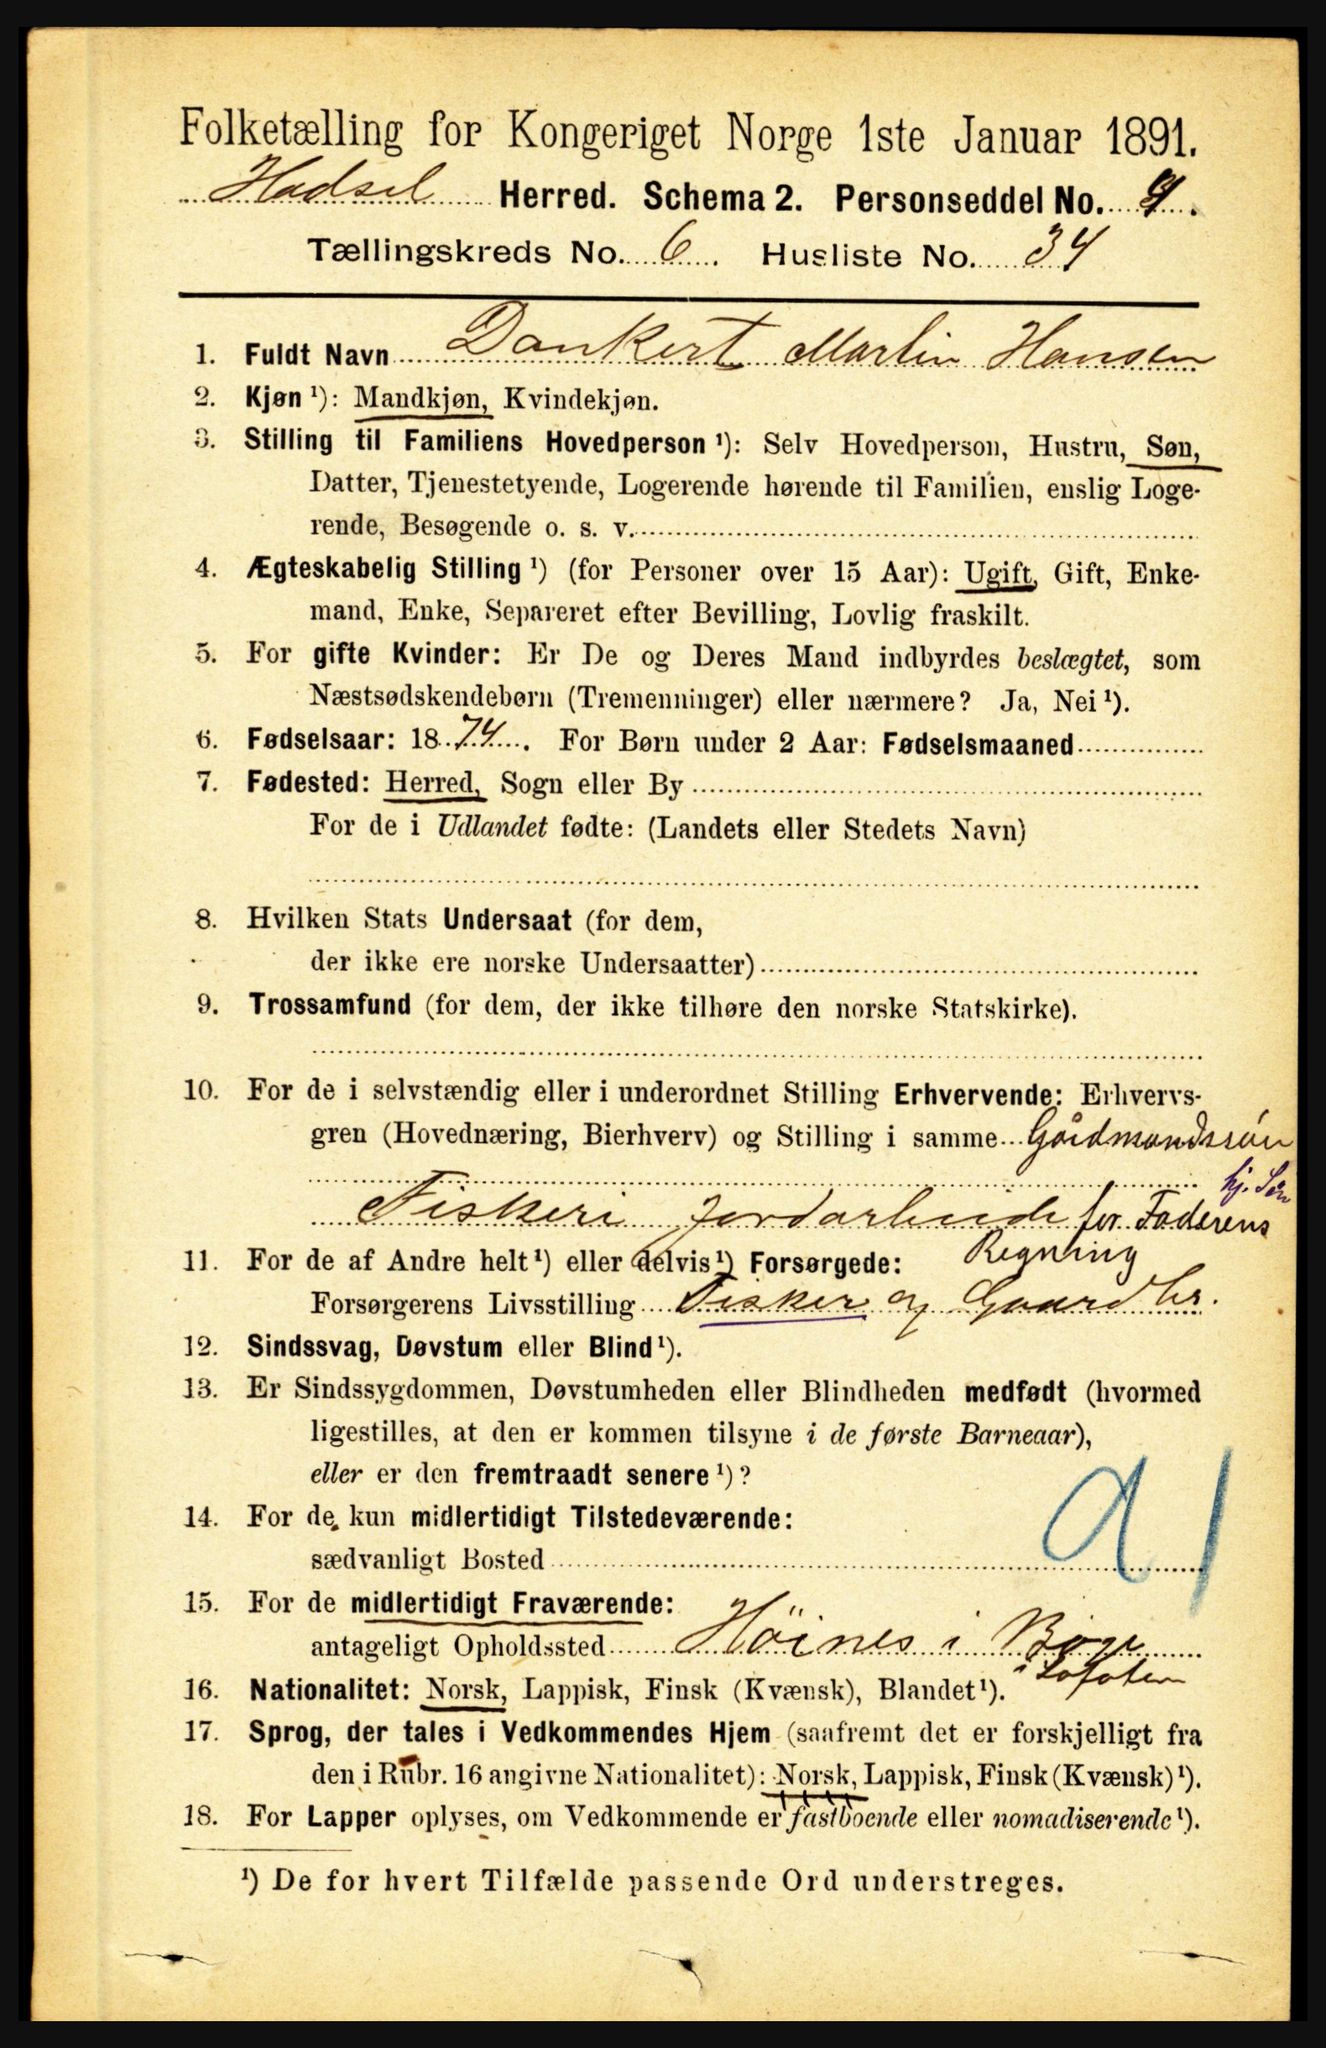 Folketælling for Kongeriget Norge 1ste Januar 1891.
Hadsel Herred. Schema 2. Personseddel No. 4.
Tællingskreds No. 6. Husliste No. 34
1. Fuldt Navn Dankert Martin Hansen
2. Kjøn ¹): Mandkjøn, Kvindekjøn.
3. Stilling til Familiens Hovedperson ¹): Selv Hovedperson, Hustru, Søn,
Datter, Tjenestetyende, Logerende hørende til Familien, enslig Loge-
rende, Besøgende o. s. v.
4. Ægteskabelig Stilling ¹) (for Personer over 15 Aar): Ugift, Gift, Enke-
mand, Enke, Separeret efter Bevilling, Lovlig fraskilt.
5. For gifte Kvinder: Er De og Deres Mand indbyrdes beslægtet, som
Næstsødskendebørn (Tremenninger) eller nærmere? Ja, Nei ¹).
6. Fødselsaar: 1874. For Børn under 2 Aar: Fødselsmaaned
7. Fødested: Herred, Sogn eller By
For de i Udlandet fødte: (Landets eller Stedets Navn)
8. Hvilken Stats Undersaat (for dem,
der ikke ere norske Undersaatter)
9. Trossamfund (for dem, der ikke tilhøre den norske Statskirke).
10. For de i selvstændig eller i underordnet Stilling Erhvervende: Erhvervs-
gren (Hovednæring, Bierhverv) og Stilling i samme Gårdmandssøn
hj. Søn
Fiskeri Jordarbeide for Faderens
Regning
11. For de af Andre helt ¹) eller delvis ¹) Forsørgede:
Forsørgerens Livsstilling Fisker og Gaardbr.
12. Sindssvag, Døvstum eller Blind ¹).
13. Er Sindssygdommen, Døvstumheden eller Blindheden medfødt (hvormed
ligestilles, at den er kommen tilsyne i de første Barneaar),
eller er den fremtraadt senere ¹)?
14. For de kun midlertidigt Tilstedeværende:
sædvanligt Bosted
15. For de midlertidigt Fraværende:
antageligt Opholdssted Höines i
i Lofoten
16. Nationalitet: Norsk, Lappisk, Finsk (Kvænsk), Blandet ¹).
17. Sprog, der tales i Vedkommendes Hjem (saafremt det er forskjelligt fra
den i Rubr. 16 angivne Nationalitet): Norsk, Lappisk, Finsk (Kvænsk) ¹).
18. For Lapper oplyses, om Vedkommende er fastboende eller nomadiserende ¹).
¹) De for hvert Tilfælde passende Ord understreges.